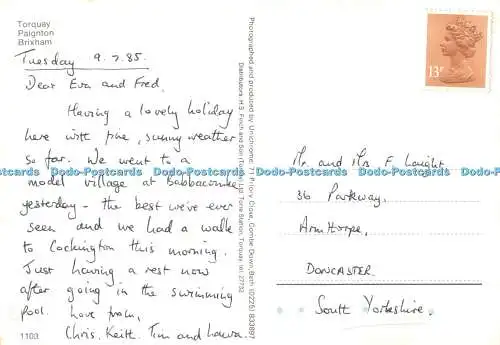 Torquay
Paignton
Brixham
Tuesday 9.7.85.
Dear Eva and Fred,
Having a lovely holiday
here with fine, sunny weather
so far. We went to a
model village at Babbacombe
yesterday - the best we've ever
seen and we had a walk
to Cockington this morning.
Just having a rest now
after going in the swimming
pool. Love from,
Chris, Keith, Tim and Laura.
1103
Photographed and produced by Unichrome, Priory Close, Combe Down, Bath (0225) 833897
Distributors H.S. Finch and Son (Torbay) Ltd. Torre Station, Torquay. Tel: 27752
13P
Mr. and Mrs F. Laught
36 Parkway,
Armthorpe,
DONCASTER.
South Yorkshire.
Dodo-Postcards Dodo-Postcards Dodo-Postcards Dodo-Postcards Dodo-Postcards